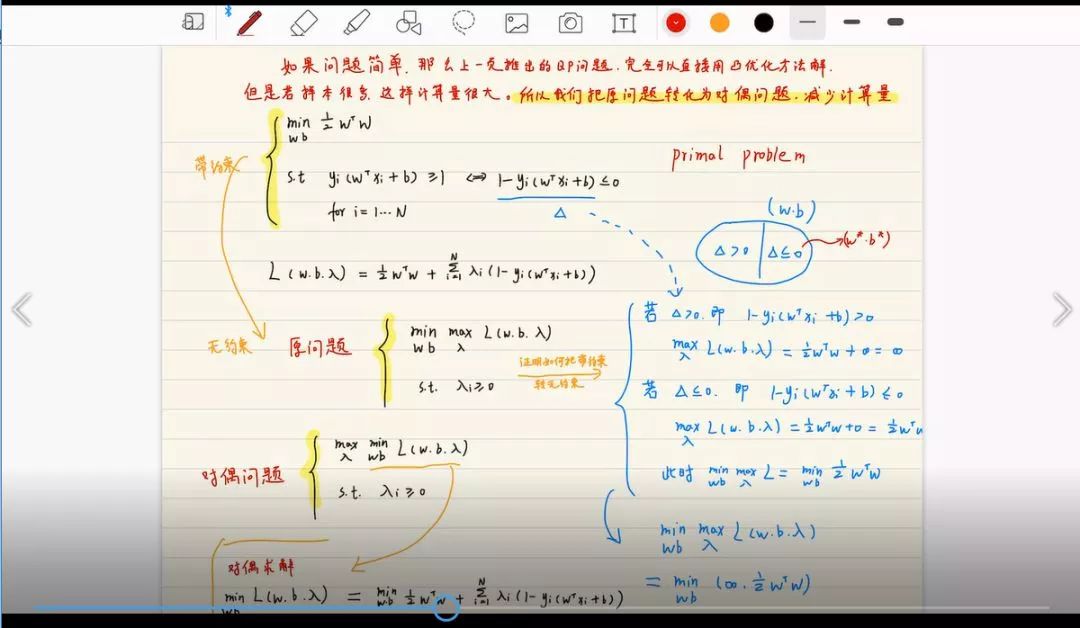 如果问题简单. 那么上一页推出的QP问题. 完全可以直接用凸优化方法解.
但是若样本很多, 这样计算量很大。所以我们把原问题转化为对偶问题. 减少计算量
带约束
min ½ wᵀw
w b
s.t yᵢ(wᵀxᵢ+b) ≥1 ⟺ 1-yᵢ(wᵀxᵢ+b) ≤0
for i=1…N
Δ
primal problem
(w.b)
Δ>0 Δ≤0 (w*.b*)
L(w.b.λ) = ½wᵀw + Σᵢ₌₁ᴺ λᵢ(1-yᵢ(wᵀxᵢ+b))
无约束
原问题
min max L(w.b.λ)
wb λ
s.t. λᵢ≥0
证明如何把带约束
转无约束
若 Δ>0. 即 1-yᵢ(wᵀxᵢ+b)>0
max L(w.b.λ) = ½wᵀw + ∞ = ∞
λ
若 Δ≤0. 即 1-yᵢ(wᵀxᵢ+b) ≤0
max L(w.b.λ) = ½wᵀw+0 = ½wᵀw
λ
此时 min max L = min ½wᵀw
wb λ wb
min max L(w.b.λ)
wb λ
= min (∞. ½wᵀw)
wb
对偶问题
max min L(w.b.λ)
λ wb
s.t. λᵢ≥0
对偶求解
min L(w.b.λ) = min ½wᵀw + Σᵢ₌₁ᴺ λᵢ(1-yᵢ(wᵀxᵢ+b))
wb w.b